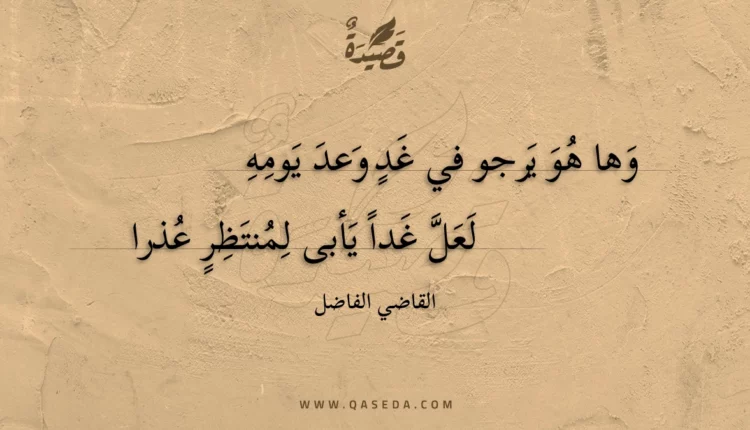 قَصِيدَةٌ
وَها هُوَ يَرجو في غَدٍ وَعدَ يَومِهِ
لَعَلَّ غَداً يَأبى لِمُنتَظِرٍ عُذرا
القاضي الفاضل
WWW.QASEDA.COM